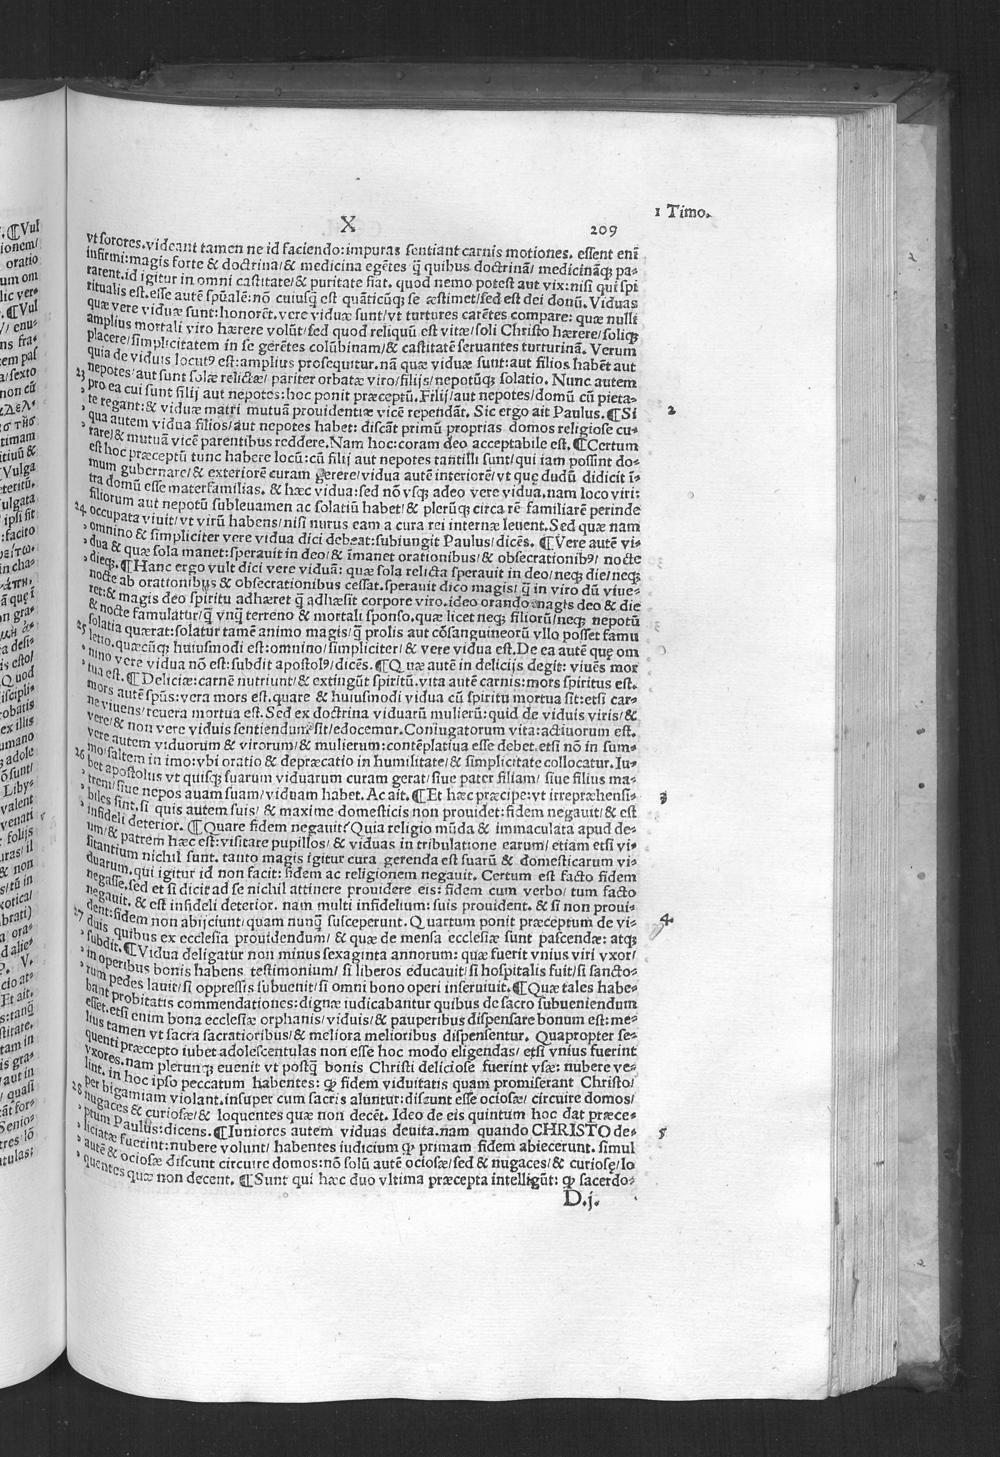 1 Timo.
X 209
vt sorores. videant tamen ne id faciendo: impuras sentiant carnis motiones. essent enī
infirmi: magis forte & doctrina/ & medicina egētes q̄ quibus doctrinā/ medicināqꝫ pa⸗
rarent. id igitur in omni castitate/ & puritate fiat. quod nemo potest aut vix: nisi qui spi
ritualis est. esse autē spūalē: nō cuiusqꝫ est quāticūqꝫ se æstimet/ sed est dei donū. Viduas
quæ vere viduæ sunt: honorēt. vere viduæ sunt/ vt turtures carētes compare: quæ nulli
amplius mortali viro hærere volūt/ sed quod reliquū est vitæ/ soli Christo hærere/ soliqꝫ
placere/ simplicitatem in se gerētes colūbinam/ & castitatē seruantes turturinā. Verum
quia de viduis locutꝰ est: amplius prosequitur. nā quæ viduæ sunt: aut filios habēt aut
23 nepotes/ aut sunt solæ relictæ/ pariter orbatæ viro/ filijs/ nepotūqꝫ solatio. Nunc autem
pro ea cui sunt filij aut nepotes: hoc ponit præceptū. Filij/ aut nepotes/ domū cū pieta⸗
te regant: & viduæ matri mutuā prouidentiæ vicē rependāt. Sic ergo ait Paulus. ¶Si 2
qua autem vidua filios/ aut nepotes habet: discāt primū proprias domos religiose cu⸗
rare/ & mutuā vicē parentibus reddere. Nam hoc: coram deo acceptabile est. ¶Certum
est hoc præceptū tunc habere locū: cū filij aut nepotes tantilli sunt/ qui iam possint do⸗
mum gubernare/ & exteriorē curam gerere/ vidua autē interiorē/ vt quę dudū didicit ī⸗
tra domū esse materfamilias. & hæc vidua: sed nō vsqꝫ adeo vere vidua. nam loco viri:
filiorum aut nepotū subleuamen ac solatiū habet/ & plerūqꝫ circa rē familiarē perinde
24 occupata viuit/ vt virū habens/ nisi nurus eam a cura rei internæ leuent. Sed quæ nam
omnino & simpliciter vere vidua dici debeat: subiungit Paulus/ dicēs. ¶Vere autē vi⸗
dua & quæ sola manet: sperauit in deo/ & īmanet orationibus/ & obsecrationibꝰ/ nocte
dieqꝫ. ¶Hanc ergo vult dici vere viduā: quæ sola relicta sperauit in deo/ neqꝫ die/ neqꝫ
nocte ab orationibus & obsecrationibus cessat. sperauit dico magis/ q̄ in viro dū viue⸗
ret: & magis deo spiritu adhæret q̄ adhæsit corpore viro. ideo orando magis deo & die
& nocte famulatur/ q̄ vnq̄ terreno & mortali sponso. quæ licet neqꝫ filiorū/ neqꝫ nepotū
solatia quærat: solatur tamē animo magis/ q̄ prolis aut cōsanguineorū vllo posset famu
25 letio. quæcūqꝫ huiusmodi est: omnino/ simpliciter/ & vere vidua est. De ea autē quę om
nino vere vidua nō est: subdit apostolꝰ/ dicēs. ¶Quæ autē in delicijs degit: viuēs mor
tua est. ¶Deliciæ: carnē nutriunt/ & extingūt spiritū. vita autē carnis: mors spiritus est.
mors autē spūs: vera mors est. quare & huiusmodi vidua cū spiritu mortua sit: etsi car⸗
ne viuens/ reuera mortua est. Sed ex doctrina viduarū mulierū: quid de viduis viris/ &
vere/ & non vere viduis sentiendum sit/ edocemur. Coniugatorum vita: actiuorum est.
vere autem viduorum & virorum/ & mulierum: contēplatiua esse debet. etsi nō in sum⸗
26 mo/ saltem in imo: vbi oratio & depræcatio in humilitate/ & simplicitate collocatur. Iu⸗
bet apostolus vt quisqꝫ suarum viduarum curam gerat/ siue pater filiam/ siue filius ma⸗
trem/ siue nepos auam suam/ viduam habet. Ac ait. ¶Et hæc præcipe: vt irrepræhensi⸗ 3
biles sint. si quis autem suis/ & maxime domesticis non prouidet: fidem negauit/ & est
infideli deterior. ¶Quare fidem negauit? Quia religio mūda & immaculata apud de⸗
um/ & patrem hæc est: visitare pupillos/ & viduas in tribulatione earum/ etiam etsi vi⸗
sitantium nichil sunt. tanto magis igitur cura gerenda est suarū & domesticarum vi⸗
duarum. qui igitur id non facit: fidem ac religionem negauit. Certum est facto fidem
negasse. sed et si dicit ad se nichil attinere prouidere eis: fidem cum verbo/ tum facto
negauit. & est infideli deterior. nam multi infidelium: suis prouident. & si non proui⸗
27 dent: fidem non abijciunt/ quam nunq̄ susceperunt. Quartum ponit præceptum de vi⸗ 4
duis quibus ex ecclesia prouidendum/ & quæ de mensa ecclesiæ sunt pascendæ: atqꝫ
subdit. ¶Vidua deligatur non minus sexaginta annorum: quæ fuerit vnius viri vxor/
in operibus bonis habens testimonium/ si liberos educauit/ si hospitalis fuit/ si sancto⸗
rum pedes lauit/ si oppressis subuenit/ si omni bono operi inseruiuit. ¶Quæ tales habe⸗
bant probitatis commendationes: dignæ iudicabantur quibus de sacro subueniendum
esset. etsi enim bona ecclesiæ orphanis/ viduis/ & pauperibus dispensare bonum est: me⸗
lius tamen vt sacra sacratioribus/ & meliora melioribus dispensentur. Quapropter se⸗
quenti præcepto iubet adolescentulas non esse hoc modo eligendas/ etsi vnius fuerint
vxores. nam plerunqꝫ euenit vt postq̄ bonis Christi deliciose fuerint vsæ: nubere ve⸗
lint. in hoc ipso peccatum habentes: ꝙ fidem viduitatis quam promiserant Christo/
28 per bigamiam violant. insuper cum sacris aluntur: discunt esse ociosæ/ circuire domos/
nugaces & curiosæ/ & loquentes quæ non decēt. Ideo de eis quintum hoc dat præce⸗
ptum Paulus: dicens. ¶Iuniores autem viduas deuita. nam quando CHRISTO de⸗ 5
liciatæ fuerint: nubere volunt/ habentes iudicium ꝙ primam fidem abiecerunt. simul
autē & ociosæ discunt circuire domos: nō solū autē ociosæ/ sed & nugaces/ & curiosę/ lo
quentes quæ non decent. ¶Sunt qui hæc duo vltima præcepta intelligūt: ꝙ sacerdo⸗
D.j.